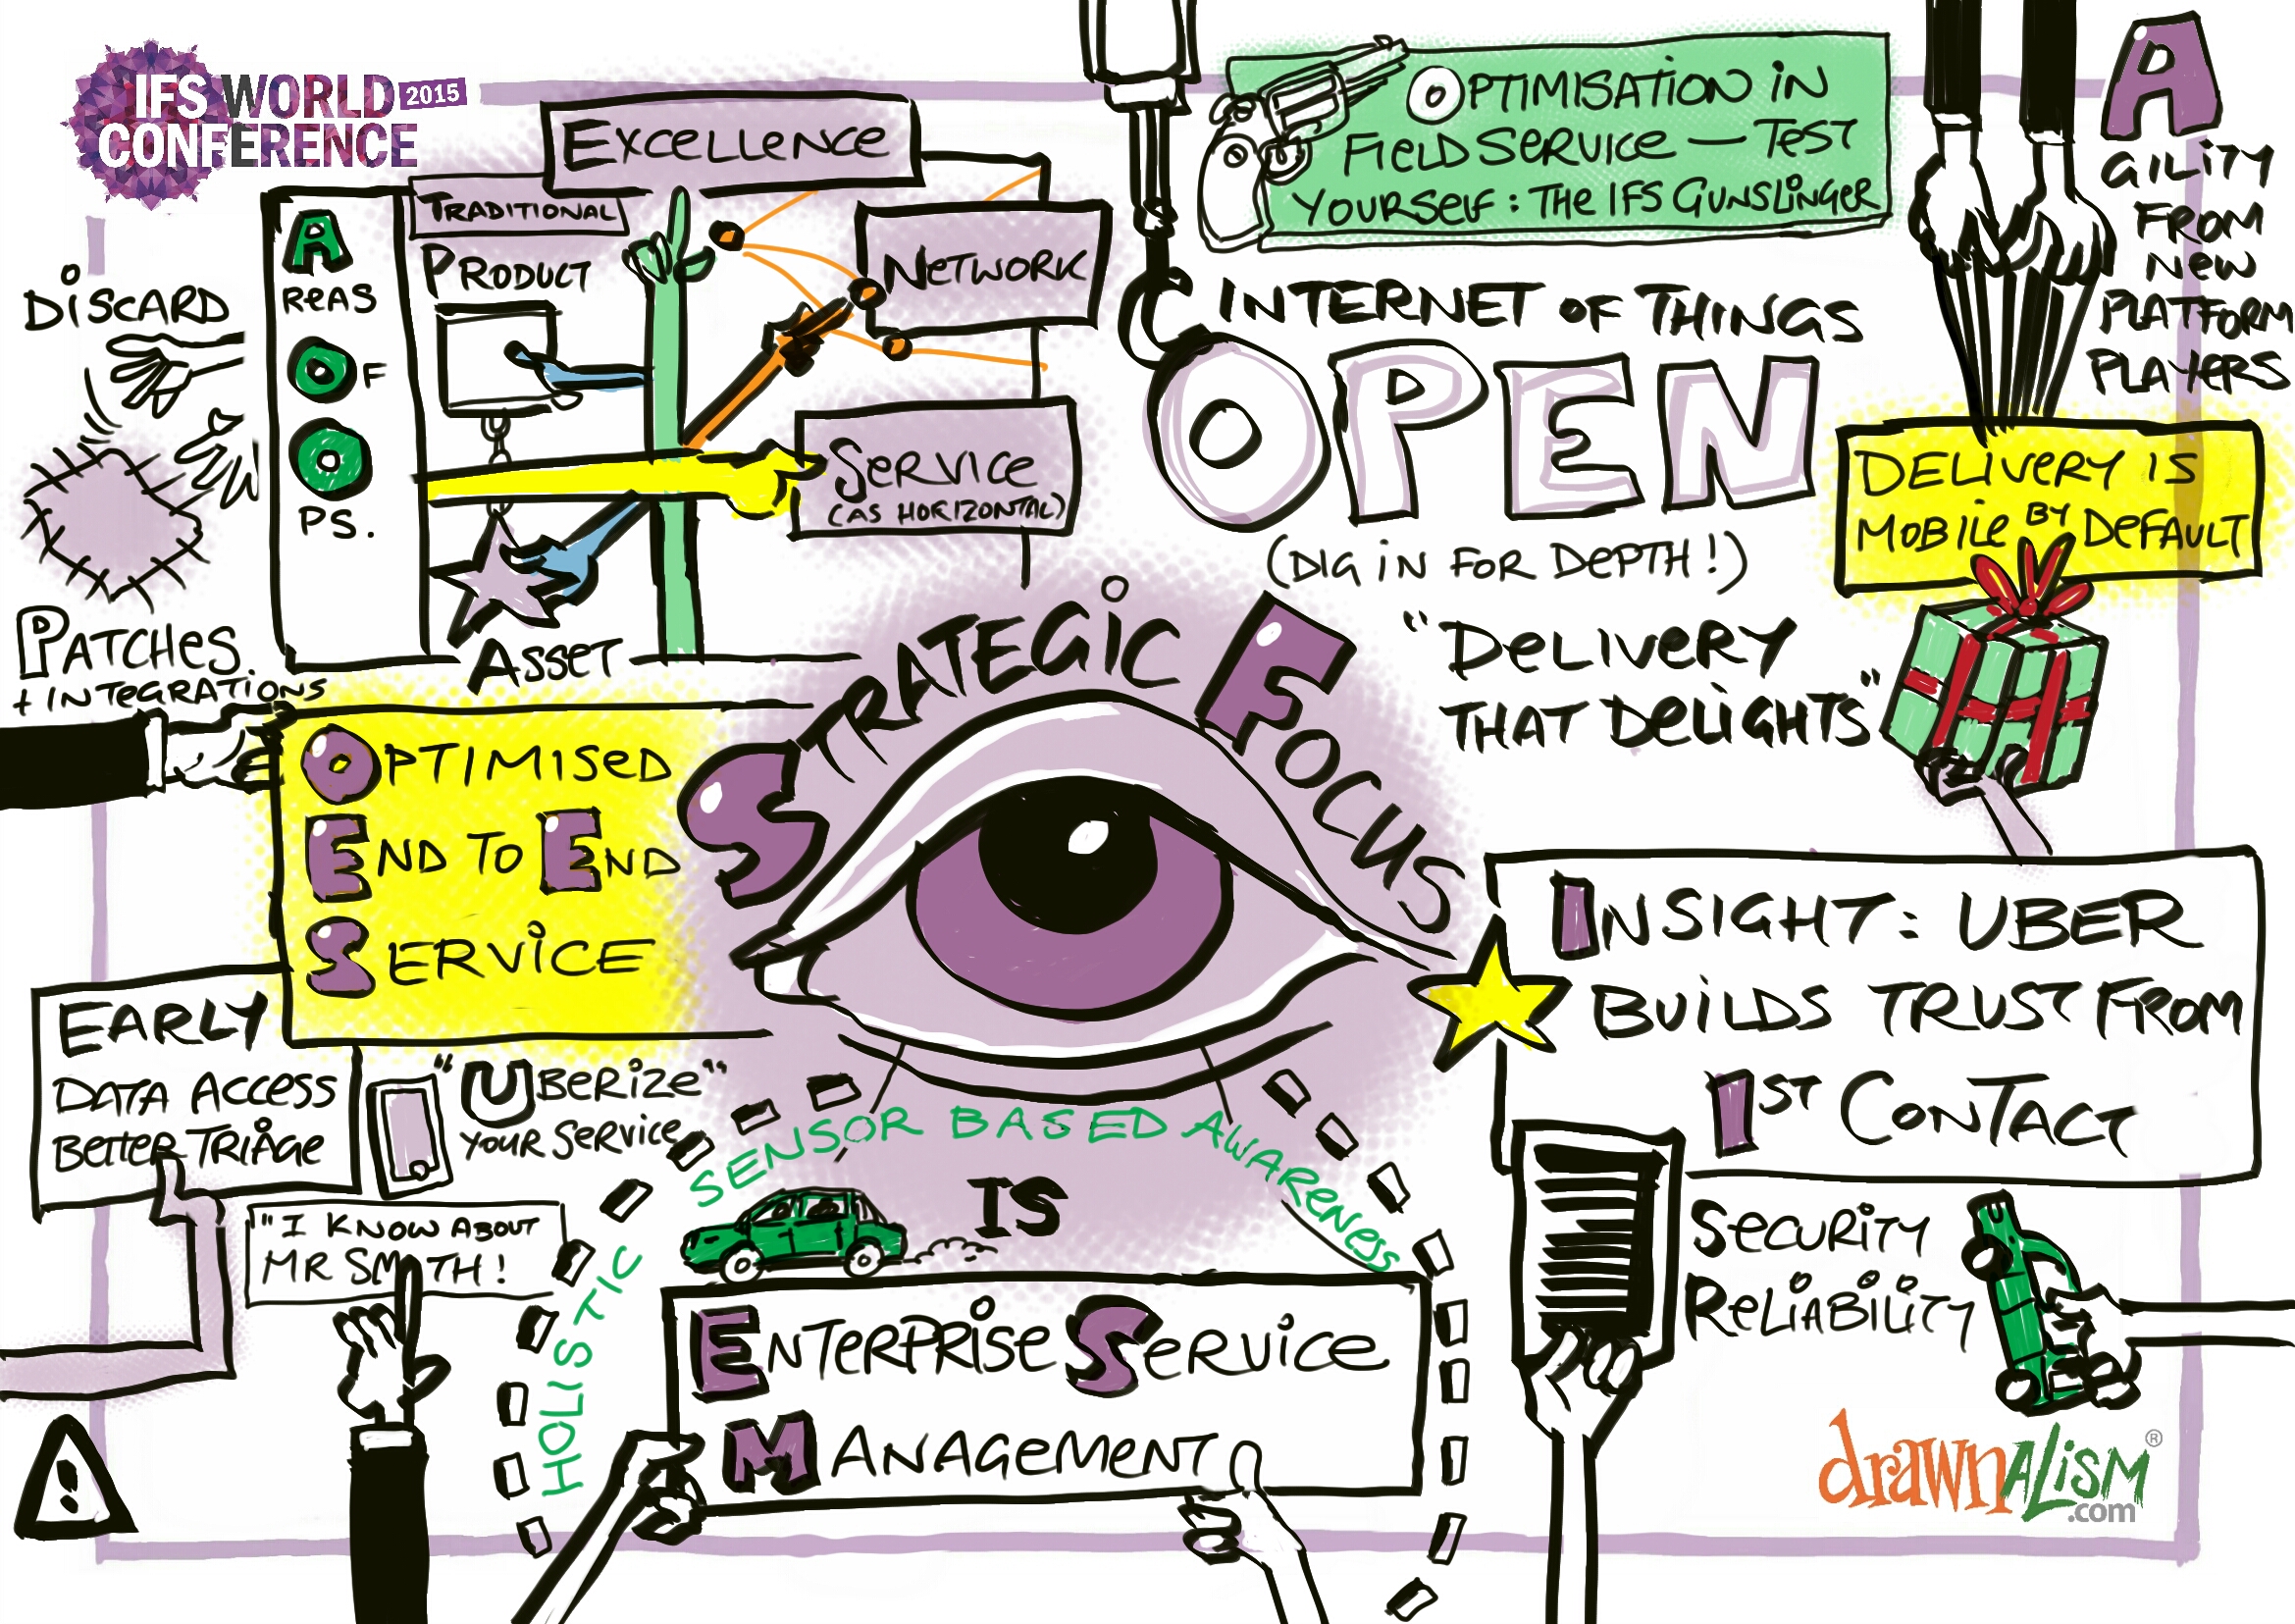 IFS WORLD 2015
CONFERENCE
EXCELLENCE
TRADITIONAL
PRODUCT
NETWORK
SERVICE
(AS HORIZONTAL)
ASSET
AREAS
OF
OPS.
DISCARD
PATCHES
+ INTEGRATIONS
OPTIMISATION IN
FIELD SERVICE — TEST
YOURSELF: THE IFS GUNSLINGER
INTERNET OF THINGS
OPEN
(DIG IN FOR DEPTH!)
"DELIVERY
THAT DELIGHTS"
AGILITY
FROM
NEW
PLATFORM
PLAYERS
DELIVERY IS
MOBILE BY DEFAULT
STRATEGIC FOCUS
OPTIMISED
END TO END
SERVICE
EARLY
DATA ACCESS
BETTER TRIAGE
"UBERIZE"
YOUR SERVICE
"I KNOW ABOUT
MR SMITH!
HOLISTIC
SENSOR BASED AWARENESS
IS
ENTERPRISE SERVICE
MANAGEMENT
INSIGHT: UBER
BUILDS TRUST FROM
1ST CONTACT
SECURITY
RELIABILITY
drawnalism®
.com